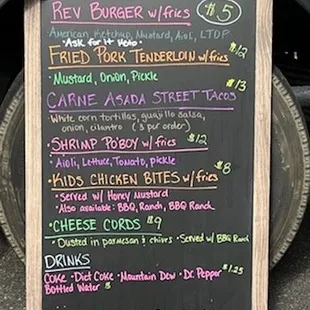 REV BURGER w/fries $5
American, Ketchup, Mustard, Aioli, LTOP
• Ask for it Keto •
FRIED PORK TENDERLOIN w/fries $12
• Mustard, Onion, Pickle
CARNE ASADA STREET TACOS $13
White corn tortillas, guajillo salsa,
onion, cilantro (3 per order)
SHRIMP PO'BOY w/ fries $12
• Aioli, Lettuce, Tomato, pickle
• KIDS CHICKEN BITES w/fries $8
• Served w/ Honey Mustard
• Also available: BBQ, Ranch, BBQ Ranch
• CHEESE CORDS $9
• Dusted in parmesan & chives • Served w/ BBQ Ranch
DRINKS
Coke • Diet Coke • Mountain Dew • Dr. Pepper $1.25
Bottled Water